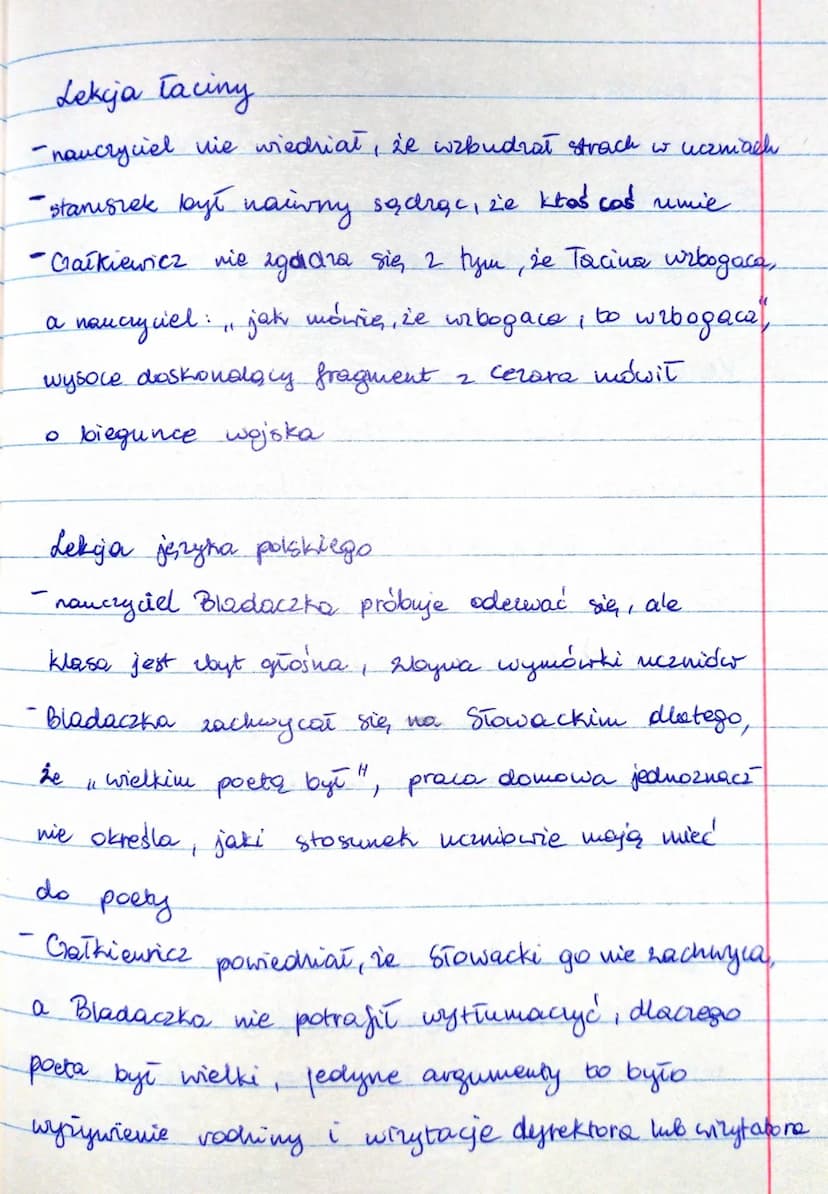 Lekcja łaciny
- nauczyciel nie wiedział, że wzbudzał strach w uczniach
- staruszek był naiwny sądząc, że ktoś coś umie
- Gałkiewicz nie zgadza się z tym, że łacina wzbogaca,
a nauczyciel: „jak mówię, że wzbogaca, to wzbogaca",
wysoce doskonalący fragment z Cezara mówił
o biegunce wojska
Lekcja języka polskiego
- nauczyciel Bladaczka próbuje oderwać się, ale
klasa jest zbyt głośna, zbywa wymówki uczniów
- Bladaczka zachwycał się na Słowackim dlatego,
że „wielkim poetą był", praca domowa jednoznacz-
nie określa, jaki stosunek uczniowie mają mieć
do poety
- Gałkiewicz powiedział, że Słowacki go nie zachwyca,
a Bladaczka nie potrafił wytłumaczyć, dlaczego
poeta był wielki, jedyne argumenty to było
wyżywienie rodziny i wizytacje dyrektora lub wizytatora